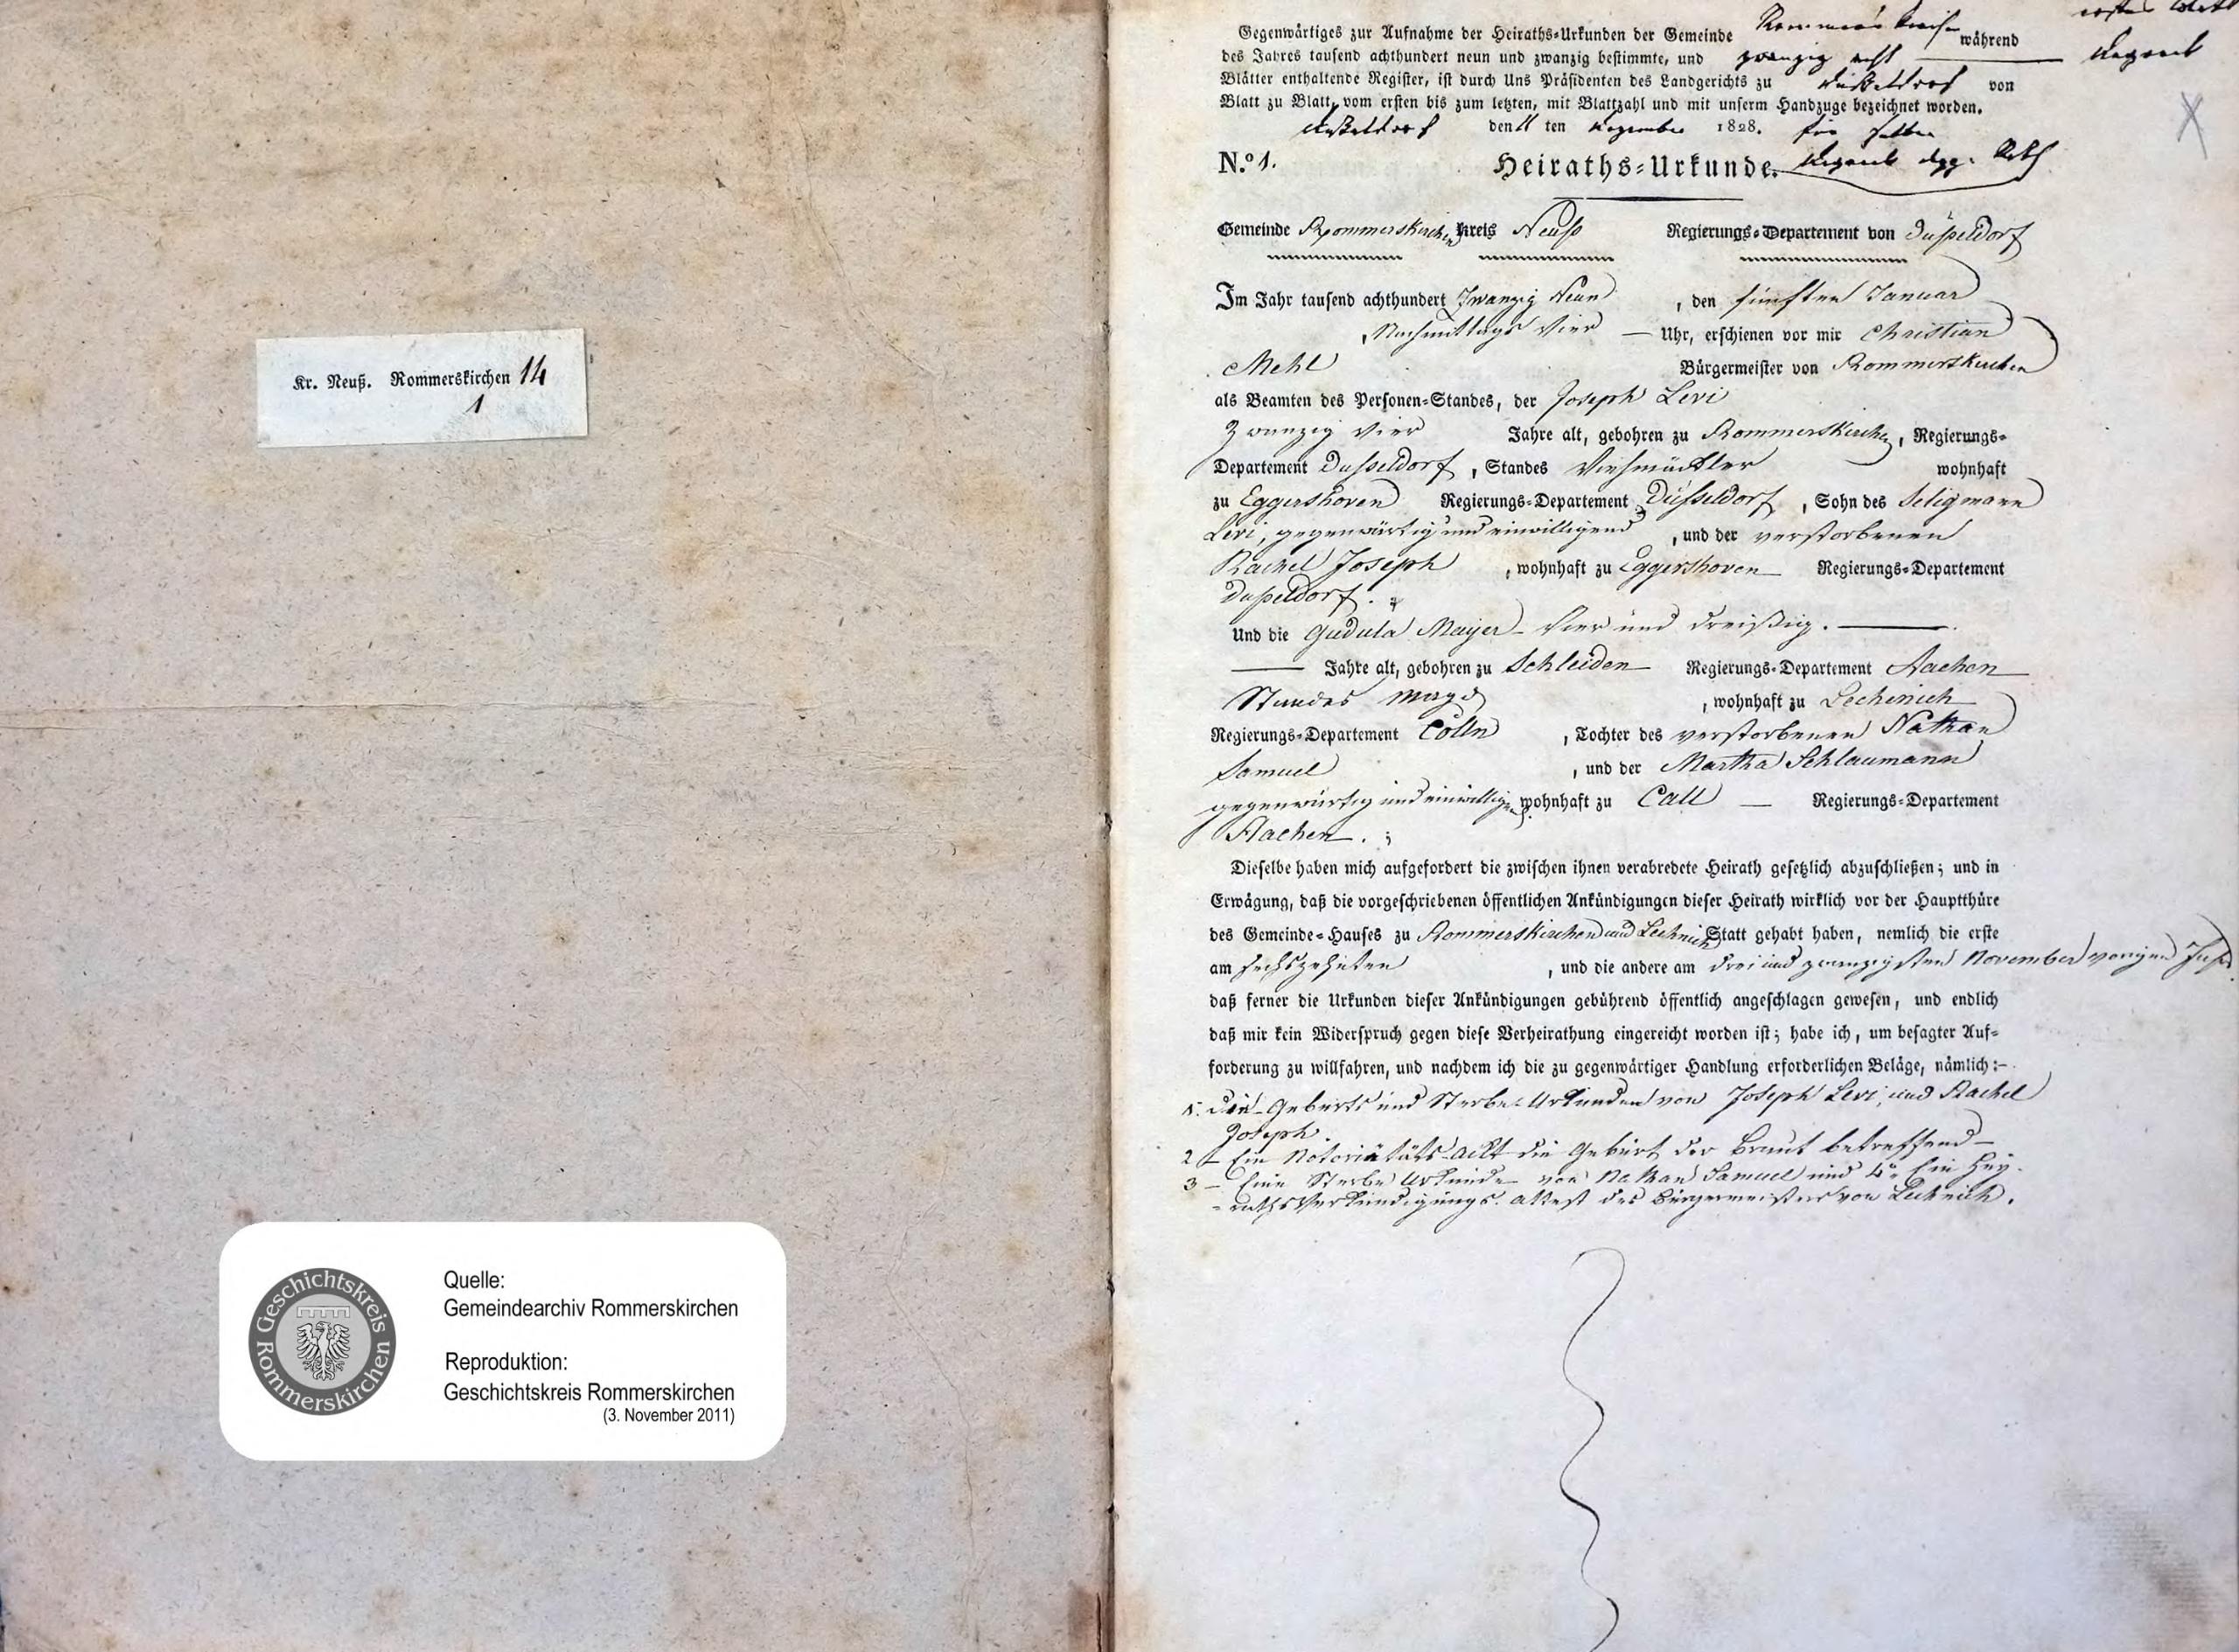 Kr. Neuß. Rommerskirchen 14
1
Geschichtskreis Rommerskirchen
Quelle:
Gemeindearchiv Rommerskirchen
Reproduktion:
Geschichtskreis Rommerskirchen
(3. November 2011)
erstes Blatt
Gegenwärtiges zur Aufnahme der Heiraths-Urkunden der Gemeinde Rommerskirchen während
des Jahres tausend achthundert neun und zwanzig bestimmte, und zwanzig acht
Blätter enthaltende Register, ist durch Uns Präsidenten des Landgerichts zu Düsseldorf von
Blatt zu Blatt, vom ersten bis zum letzten, mit Blattzahl und mit unserm Handzuge bezeichnet worden.
Düsseldorf den 11 ten Dezember 1828.
N.º 1. Heiraths-Urkunde.
Gemeinde Rommerskirchen Kreis Neuß Regierungs-Departement von Düsseldorf
Im Jahr tausend achthundert Zwanzig Neun, den fünften Januar
Nachmittags Vier — Uhr, erschienen vor mir Christian
Mehl Bürgermeister von Rommerskirchen
als Beamten des Personen-Standes, der Joseph Levi
Zwanzig Vier Jahre alt, gebohren zu Rommerskirchen, Regierungs-
Departement Dusseldorf, Standes Viehmäckler wohnhaft
zu Eggershoven Regierungs-Departement Düsseldorf, Sohn des Seligmann
Levi, gegenwärtig und einwilligend, und der verstorbenen
Rachel Joseph, wohnhaft zu Eggershoven Regierungs-Departement
Dusseldorf.
Und die Gudula Mayer – Vier und dreißig. —
— Jahre alt, gebohren zu Schleiden Regierungs-Departement Aachen
Standes Magd, wohnhaft zu Lechenich
Regierungs-Departement Cölln, Tochter des verstorbenen Nathan
Samuel, und der Martha Schlaumann
gegenwärtig und einwilligend wohnhaft zu Call — Regierungs-Departement
Aachen.
Dieselbe haben mich aufgefordert die zwischen ihnen verabredete Heirath gesetzlich abzuschließen; und in
Erwägung, daß die vorgeschriebenen öffentlichen Ankündigungen dieser Heirath wirklich vor der Hauptthüre
des Gemeinde-Hauses zu Rommerskirchen und Lechnich Statt gehabt haben, nemlich die erste
am sechszehnten, und die andere am drei und zwanzigsten November vorigen Jahrs
daß ferner die Urkunden dieser Ankündigungen gebührend öffentlich angeschlagen gewesen, und endlich
daß mir kein Widerspruch gegen diese Verheirathung eingereicht worden ist; habe ich, um besagter Auf-
forderung zu willfahren, und nachdem ich die zu gegenwärtiger Handlung erforderlichen Beläge, nämlich:–
1. Die Geburts und Sterbe-Urkunden von Joseph Levi, und Rachel
Joseph.
2 – Ein Notorietäts-Act die Geburt der Braut betreffend –
3 – Eine Sterbe Urkunde von Nathan Samuel und 4º Ein Hey-
-rathsVerkündigungs. Attest des Bürgermeisters von Lechnich.